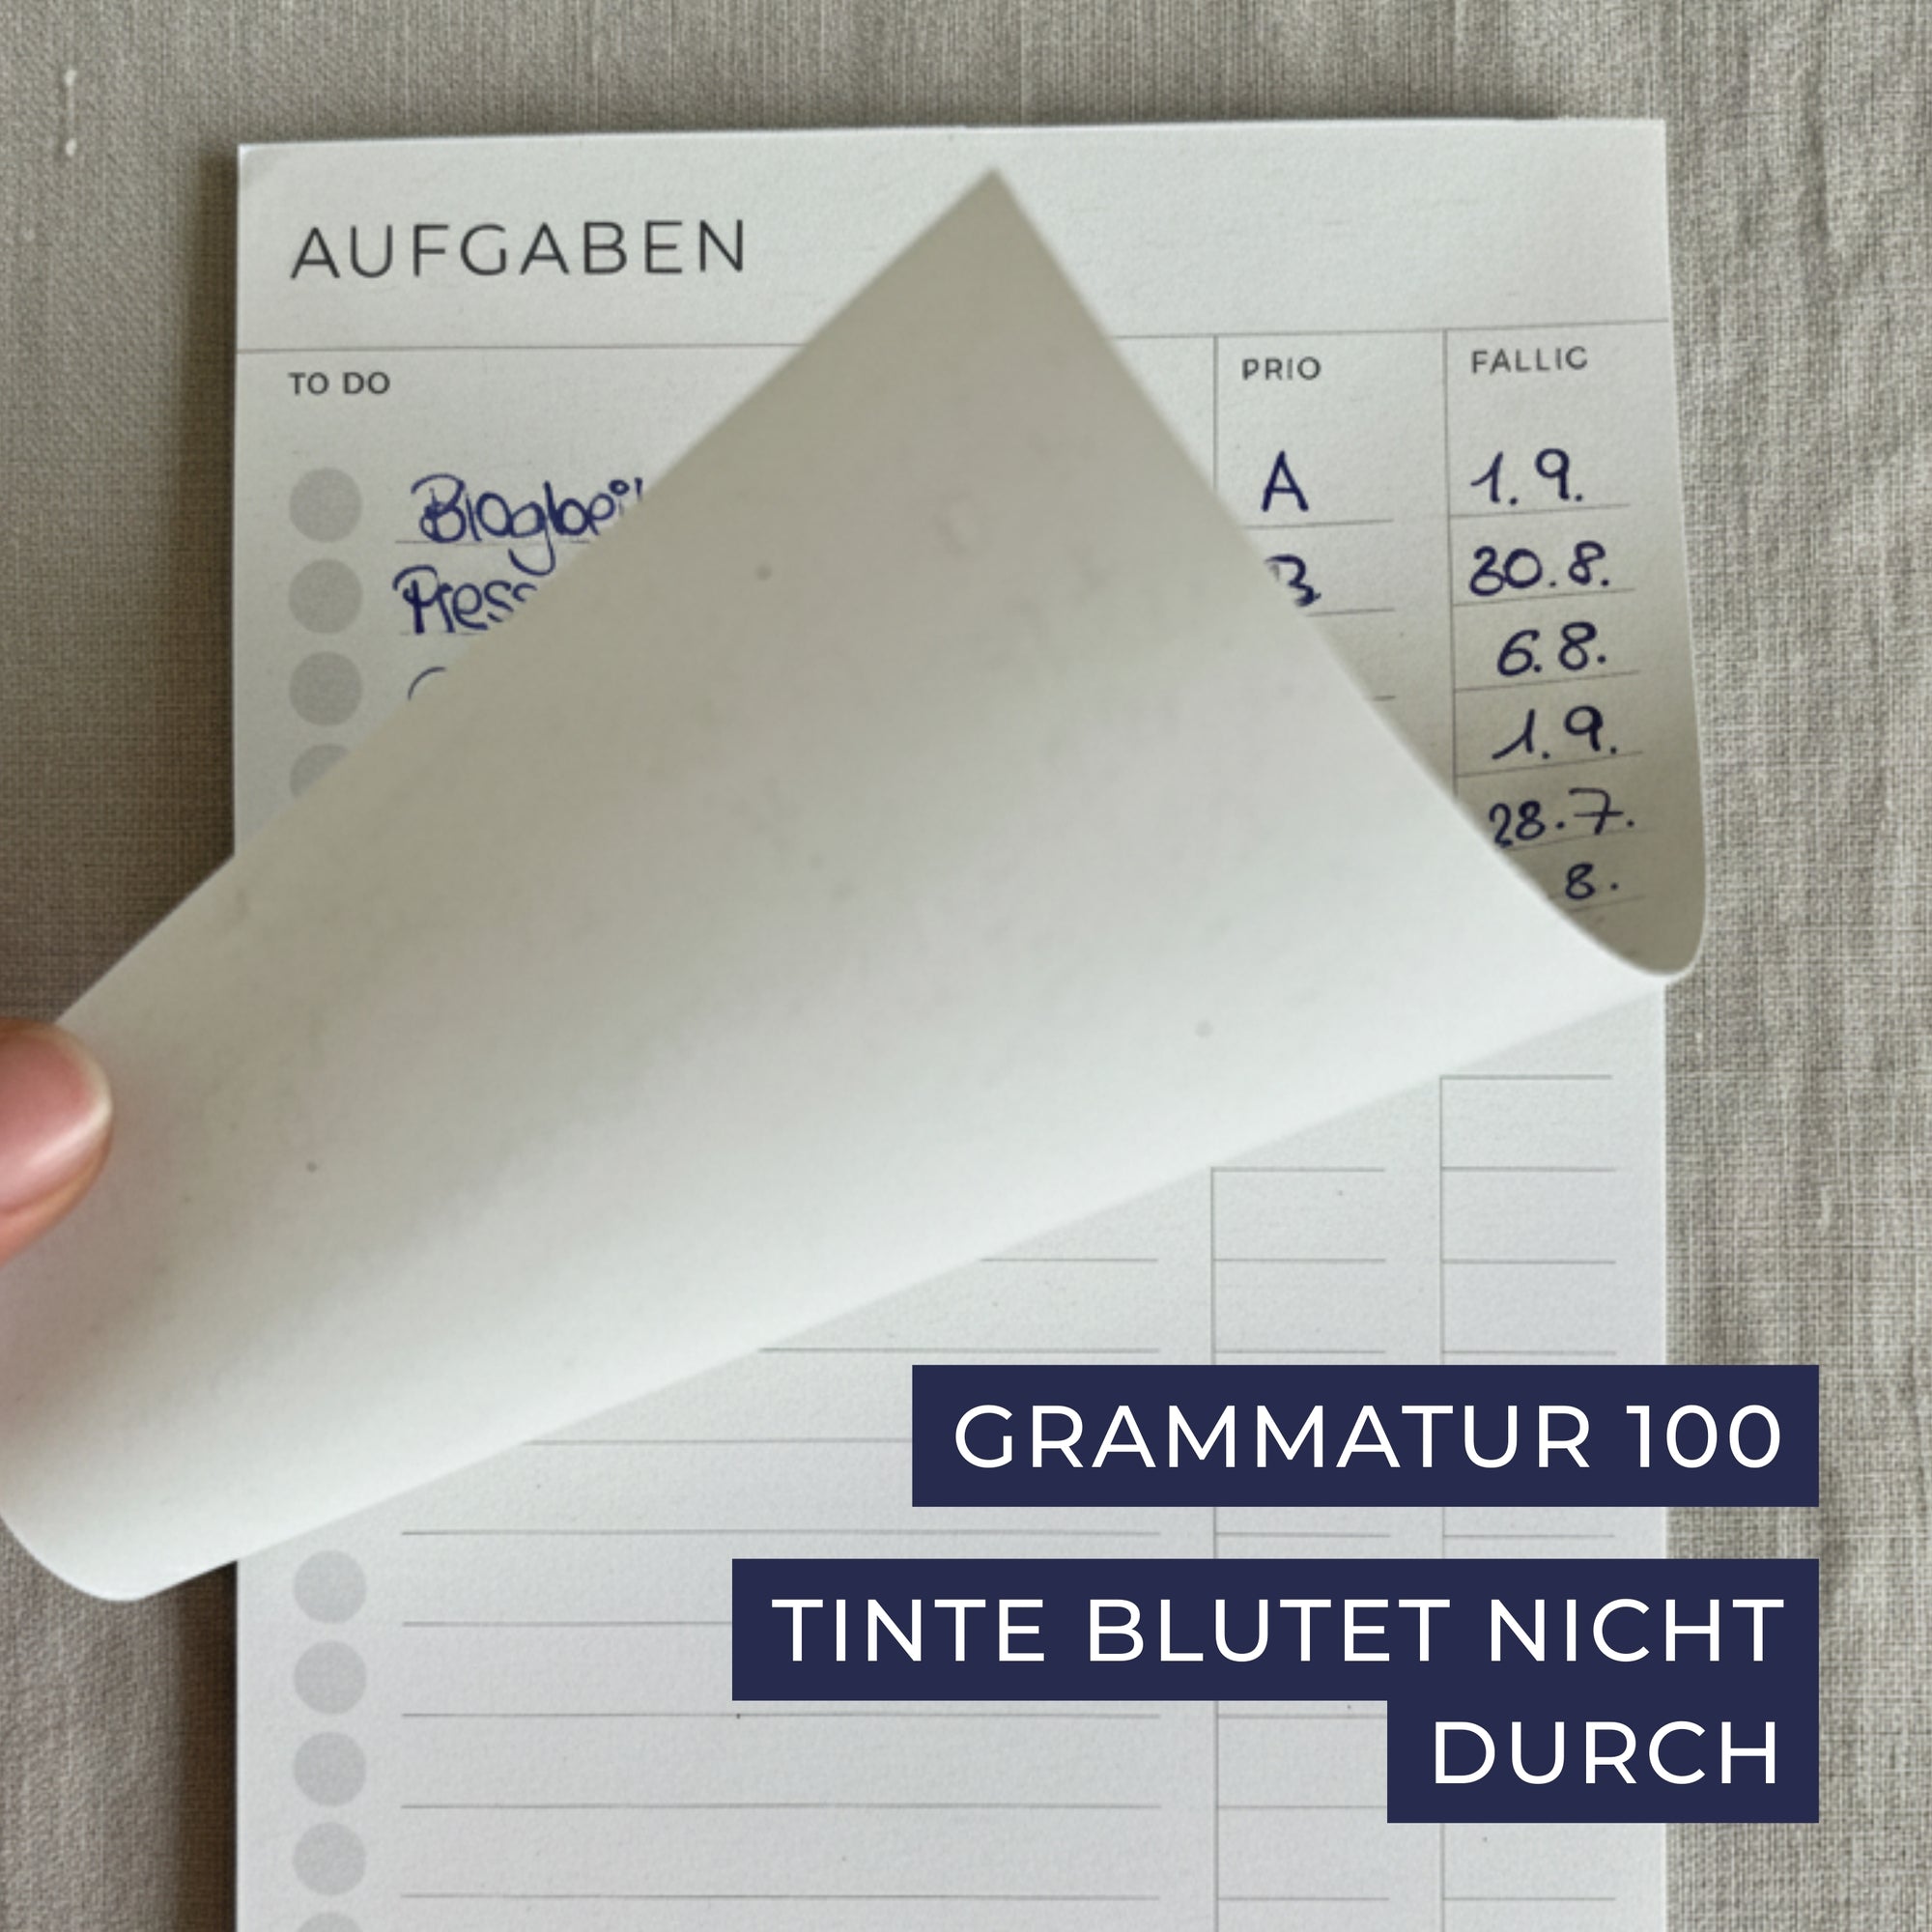 AUFGABEN
TO DO PRIO FALLIG
A 1. 9.
B 30. 8.
6. 8.
1. 9.
28. 7.
8.
GRAMMATUR 100
TINTE BLUTET NICHT
DURCH